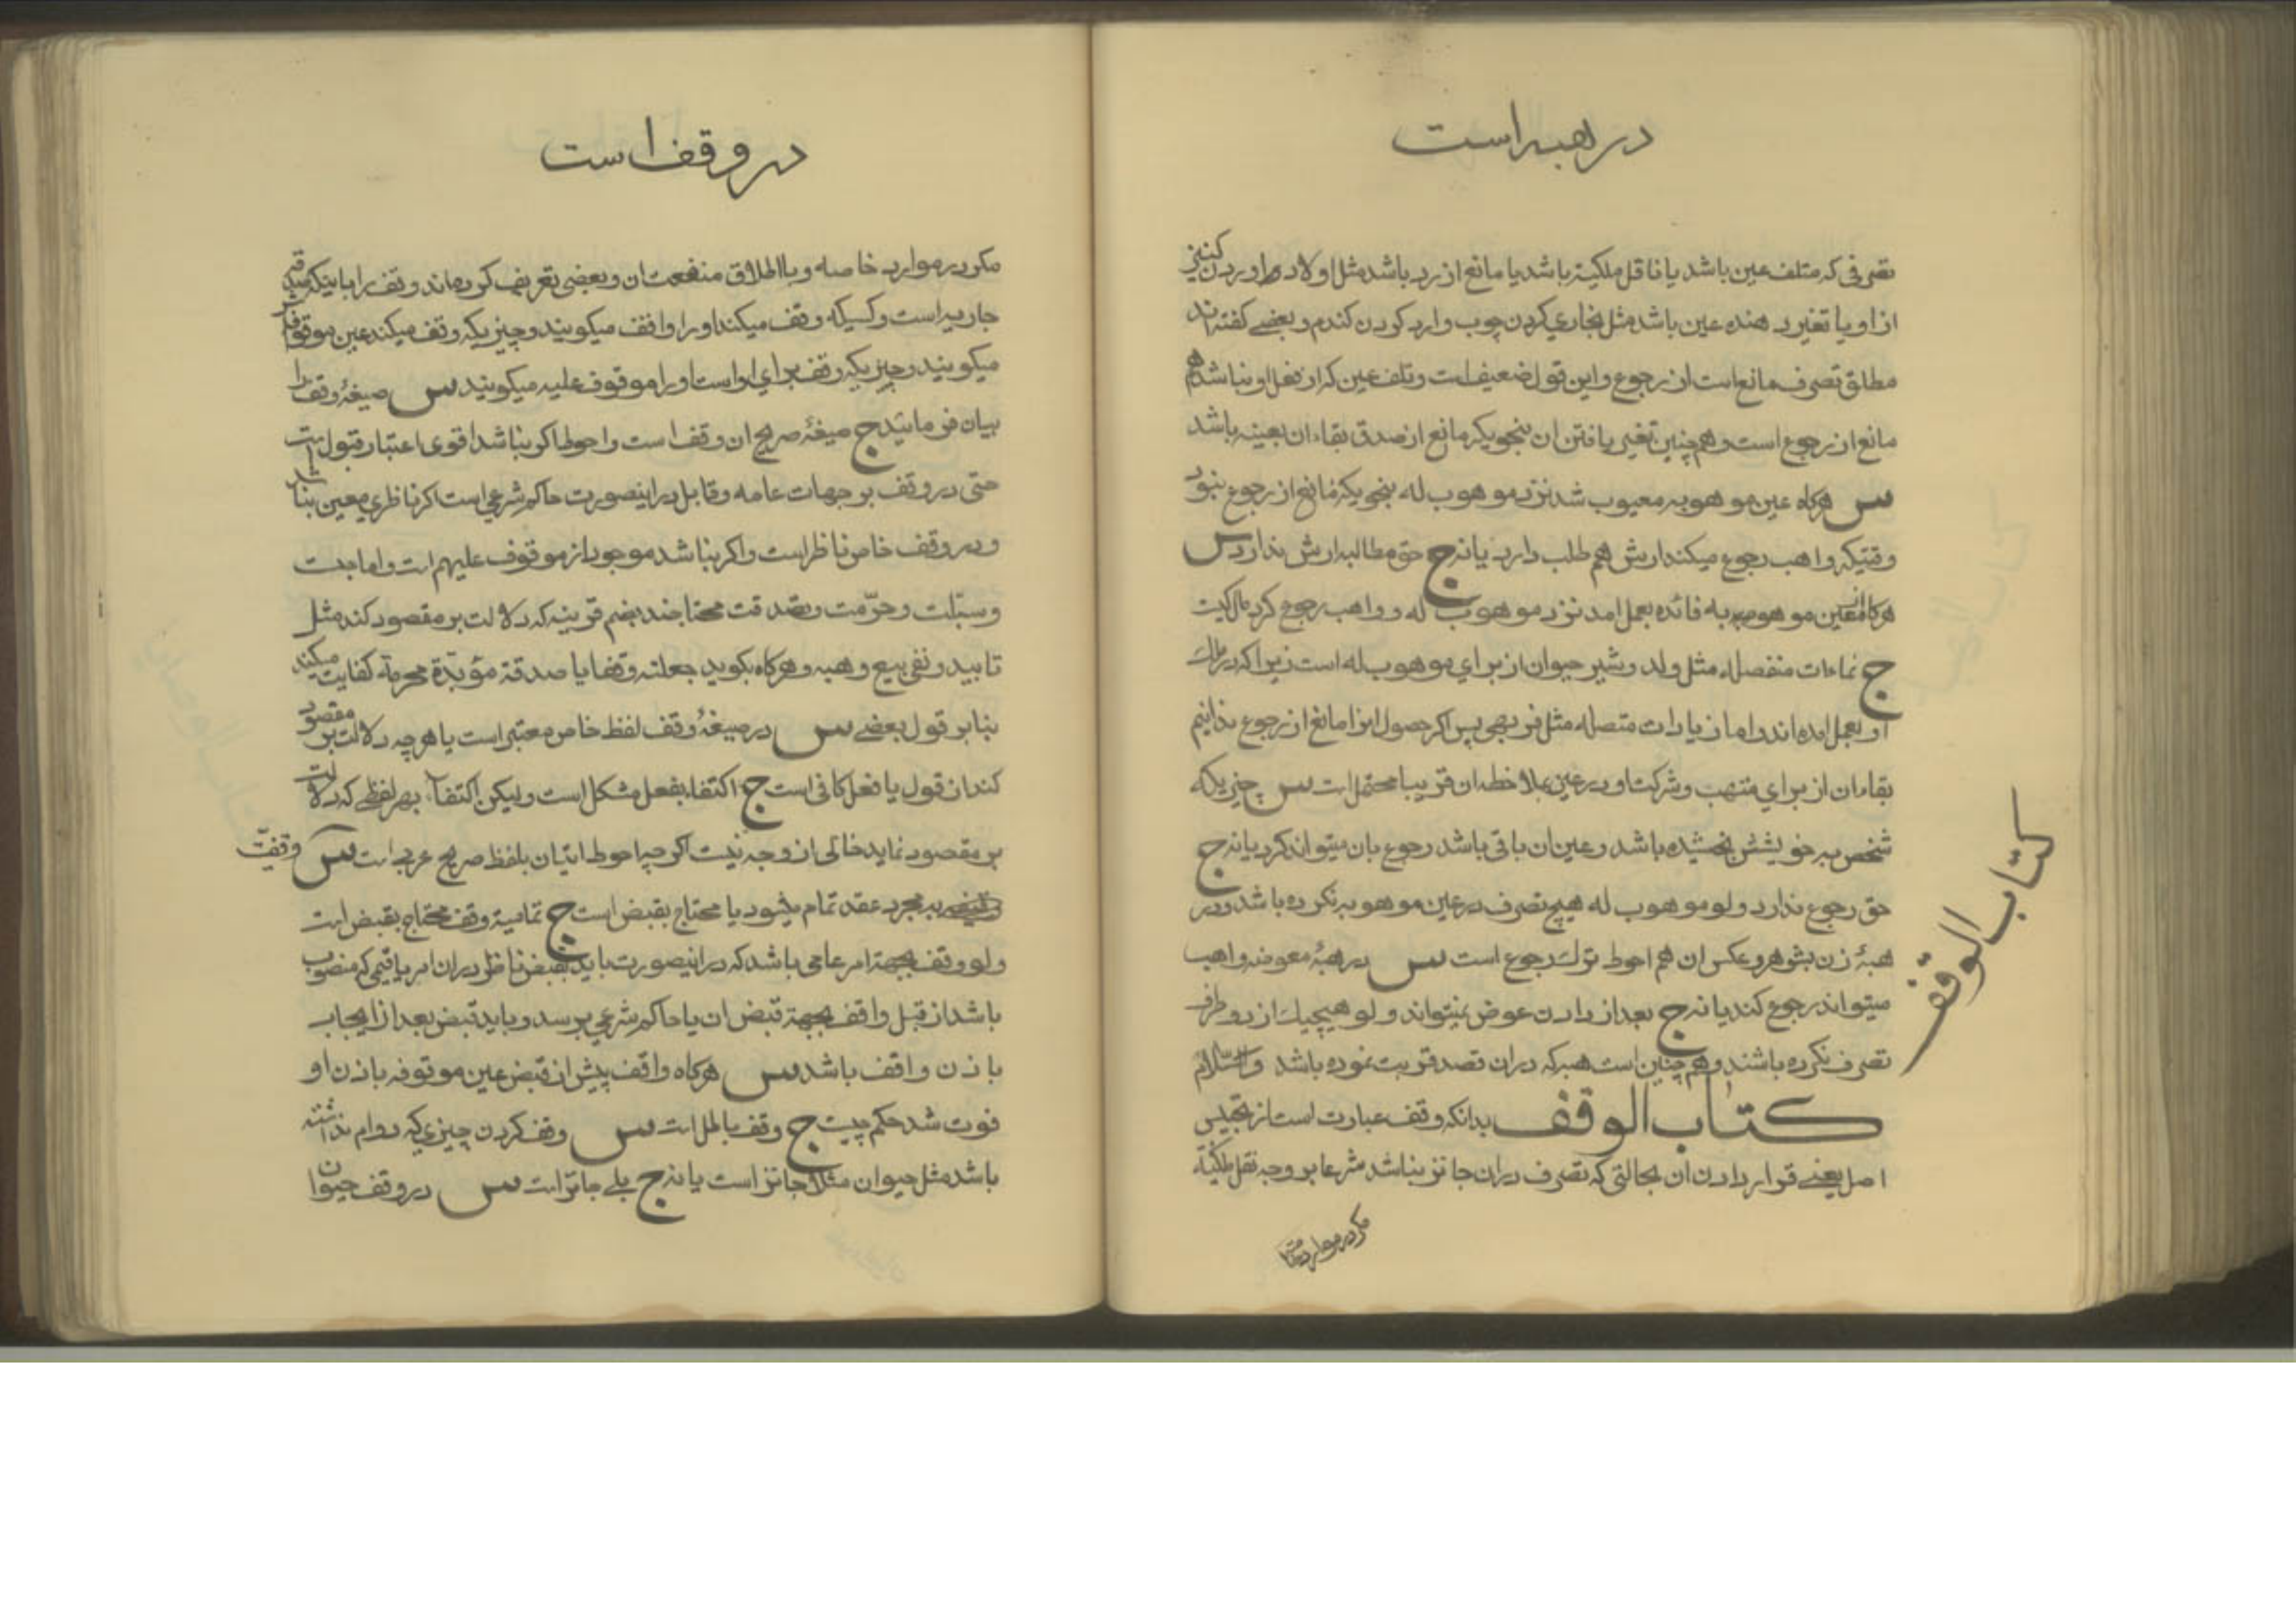 در هبه است
تصرفی که متلف عین باشد یا ناقل ملکیة باشد یا مانع از رد باشد مثل اولاد اوردن کنیز
از او یا تغیر دهنده عین باشد مثل نجاری کردن چوب و ارد کردن کندم و بعضی کفته اند
مطلق تصرف مانع است از رجوع و این قول ضعیف است و تلف عین که از فعل او نباشد هم
مانع از رجوع است و هم چنین تغیر یافتن ان بنحویکه مانع از صدق بقاء ان بعینه باشد
س هرکاه عین موهوبه معیوب شد نزد موهوب له بنحویکه مانع از رجوع نبود
وقتیکه واهب رجوع میکند ارش هم طلب دارد یا نه ج حق مطالبه ارش ندارد س
هرکاه از عین موهوبه فائده بعمل امد نزد موهوب له و واهب رجوع کرد مال کیست
ج نماءات منفصله مثل ولد و شیر حیوان از برای موهوب له است زیرا که در ملك
او بعمل امده اند و اما زیادات متصله مثل فربهی پس اکر حصول انرا مانع از رجوع ندانیم
بقاء ان از برای متهب و شرکت او در عین بملاحظه ان قریبا محتمل است س چیزیکه
شخص به خویشش بخشیده باشد و عین ان باقی باشد رجوع بان میتواند کرد یا نه ج
حق رجوع ندارد ولو موهوب له هیچ تصرف در عین موهوبه نکرده باشد و در
هبۀ زن بشوهر و عکس ان هم احوط ترك رجوع است س در هبۀ معوضه واهب
میتواند رجوع کند یا نه ج بعد از دادن عوض نمیتواند ولو هیچیك از دو طرف
تصرف نکرده باشند و هم چنین است هبه که در ان قصد قربت نموده باشد والسّلام
کتاب الوقف بدانکه وقف عبارت است از تحبیس
اصل یعنی قرار دادن ان بحالتی که تصرف در ان جائز نباشد شرعا بر وجه نقل ملکیة
مکر در موارد خاصه
کتاب الوقف
در وقف است
مکر در موارد خاصه و با اطلاق منفعت ان و بعضی تعریف کرده اند وقف را باینکه صدقه
جاریه است و کسیکه وقف میکند او را واقف میکویند و چیزیکه وقف میکند عین موقوفه
میکویند و چیزیکه وقف برای او است او را موقوف علیه میکویند س صیغۀ وقف را
بیان فرمائید ج صیغۀ صریح ان وقف است و احوط اکر نباشد اقوی اعتبار قبول است
حتی در وقف بر جهات عامه و قابل در اینصورت حاکم شرعی است اکر ناظری معین نباشد
و در وقف خاص ناظر است و اکر نباشد موجود از موقوف علیهم است و اما حبست
و سبّلت و حرّمت و تصدقت محتاجند بضم قرینه که دلالت بر مقصود کند مثل
تابید و نفی بیع و هبه و هرکاه بکوید جعلته وقفا یا صدقة مؤبدة محرمة کفایت میکند
بنابر قول بعضی س در صیغۀ وقف لفظ خاص معتبر است یا هر چه دلالت بر مقصود
کند از قول یا فعل کافی است ج اکتفاء بفعل مشکل است ولیکن اکتفاء بهر لفظی که دلالت
بر مقصود نماید خالی از وجه نیست اکر چه احوط اتیان بلفظ صریح عربی است س وقفیّت
به مجرد عقد تمام میشود یا محتاج بقبض است ج تمامیة وقف محتاج بقبض است
ولو وقف بجهة امر عامی باشد که در اینصورت باید بقبض ناظر در ان امر یا قیمی که منصوب
باشد از قبل واقف بجهة قبض ان یا حاکم شرعی برسد و باید قبض بعد از ایجاب
با ذن واقف باشد س هرکاه واقف پیش از قبض عین موقوفه باذن او
فوت شد حکم چیست ج وقف باطل است س وقف کردن چیزی که دوام نداشته
باشد مثل حیوان مثلا جائز است یا نه ج بلی جائز است س در وقف حیوان